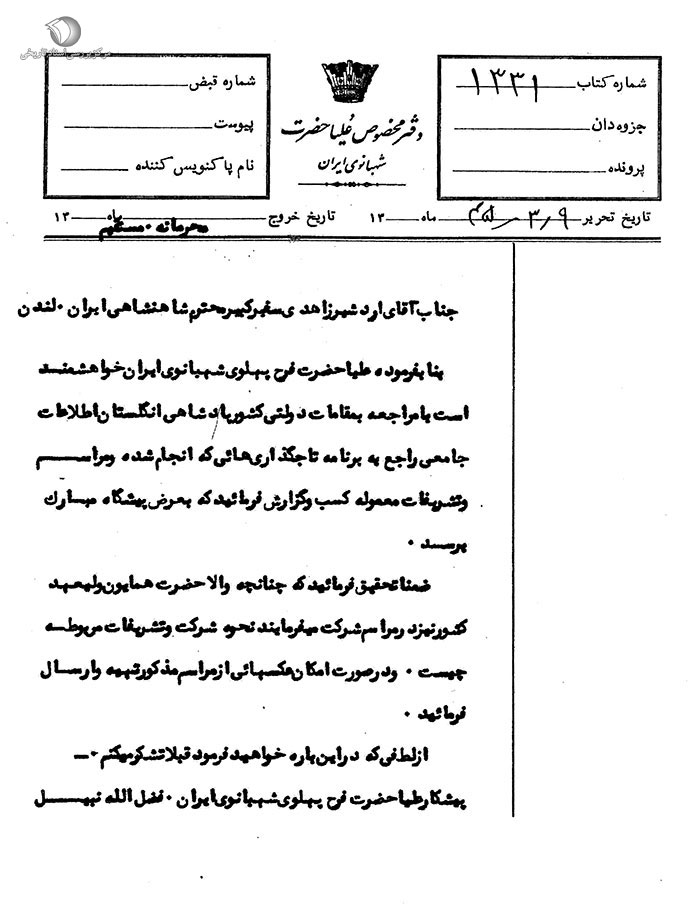 مرکز بررسی اسناد تاریخی
شماره کتاب ۱۳۳۱
جزوه دان
پرونده
دفتر مخصوص علیا حضرت
شهبانوی ایران
شماره قبض
پیوست
نام پاکنویس کننده
تاریخ تحریر ۹ ر ۳ ر ۴۵ ماه ۱۳ تاریخ خروج ماه ۱۳
محرمانه۰مستقیم
جناب آقای اردشیر زاهدی سفیر کبیر محترم شاهنشاهی ایران ۰ لندن
بنا بفرموده علیا حضرت فرح پهلوی شهبانوی ایران خواهشمند
است با مراجعه بمقامات دولتی کشور پادشاهی انگلستان اطلاعات
جامعی راجع به برنامه تاجگذاری هائی که انجام شده ومراسم
وتشریفات معموله کسب وگزارش فرمائید که بعرض پیشگاه مبارک
برسد ۰
ضمنا تحقیق فرمائید که چنانچه والا حضرت همایون ولیعهد
کشور نیز در مراسم شرکت میفرمایند نحوه شرکت وتشریفات مربوطه
چیست ۰ ودر صورت امکان عکسهائی از مراسم مذکور تهیه وارسال
فرمائید ۰
از لطفی که در این باره خواهید فرمود قبلا تشکر میکنم ۰ـ
پیشکار علیا حضرت فرح پهلوی شهبانوی ایران ۰ فضل الله نبیل